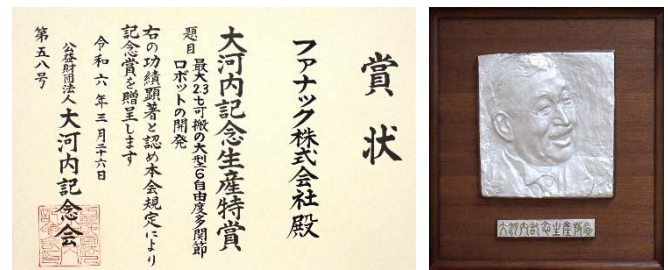 賞状
ファナック株式会社殿
大河内記念生産特賞
題目 最大2.3t可搬の大型6自由度多関節
ロボットの開発
右の功績顕著と認め本会規定により
記念賞を贈呈します
令和六年三月二十六日
公益財団法人大河内記念会
第五八号
大河内記念生産特賞